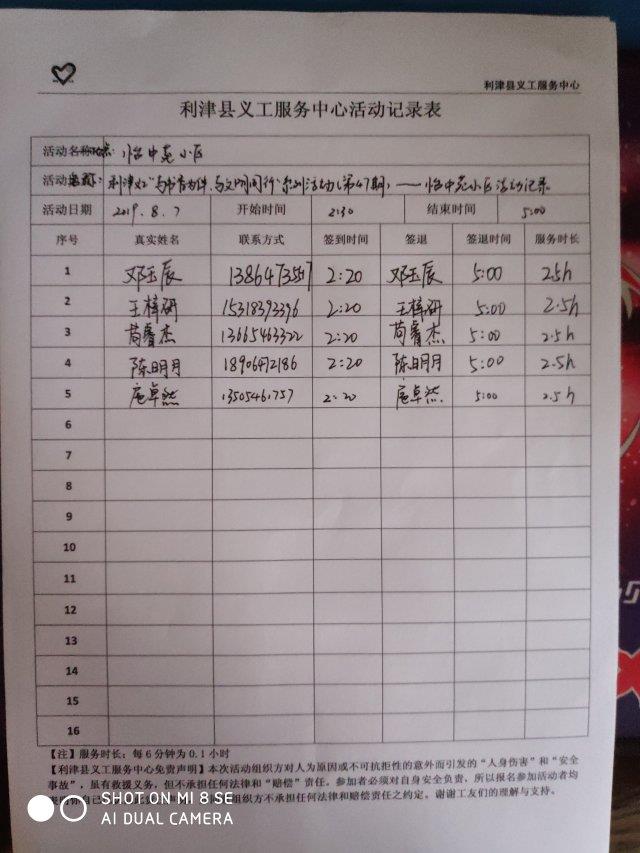 利津县义工服务中心
利津县义工服务中心活动记录表
活动名称 怡中苑小区
活动 利津义工"与书香为伴,与文明同行"系列活动(第47期)——怡中苑小区活动记录
活动日期 2019.8.7 开始时间 2:30 结束时间 5:00
序号 真实姓名 联系方式 签到时间 签退 签退时间 服务时长
1 邓玉辰 13864735577 2:20 邓玉辰 5:00 2.5h
2 王梓研 15318393396 2:20 王梓研 5:00 2.5h
3 苟睿杰 13665463322 2:20 苟睿杰 5:00 2.5h
4 陈明月 18906472186 2:20 陈明月 5:00 2.5h
5 卓然 13505461757 2:20 卓然 5:00 2.5h
6
7
8
9
10
11
12
13
14
15
16
【注】服务时长:每6分钟为0.1小时
【利津县义工服务中心免责声明】本次活动组织方对人为原因或不可抗拒性的意外而引发的"人身伤害"和"安全
事故",虽有救援义务,但不承担任何法律和"赔偿"责任。参加者必须对自身安全负责,所以报名参加活动者均
组织方不承担任何法律和赔偿责任之约定。谢谢工友们的理解与支持。
SHOT ON MI 8 SE
AI DUAL CAMERA